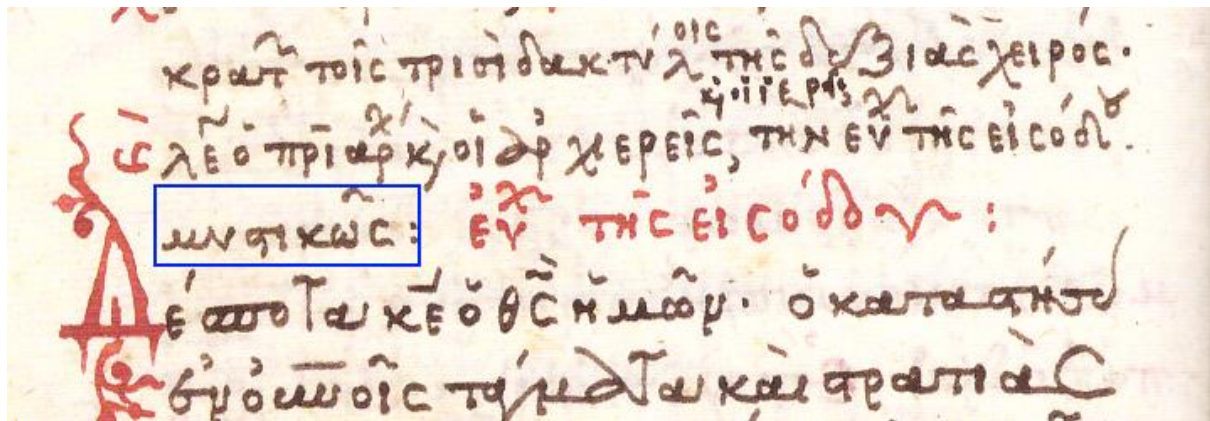 κρατ̑ τοῖς τρισὶ δακτύλοις τῆς δεξιᾶς χειρός·
λε̑ ὁ πρῖαρχ κ, οἱ ἀρχιερεῖς, κ, οἱ ἱερεῖς τὴν εὐχ τῆς εἰσόδου.
μυστικῶς: εὐχ τῆς εἰσόδου:
Δέσποτα κε̅ ὁ θς̅ ἡμῶν· ὁ καταστήσ
ἐν ουνοῖς τάγματα καὶ στρατιὰς